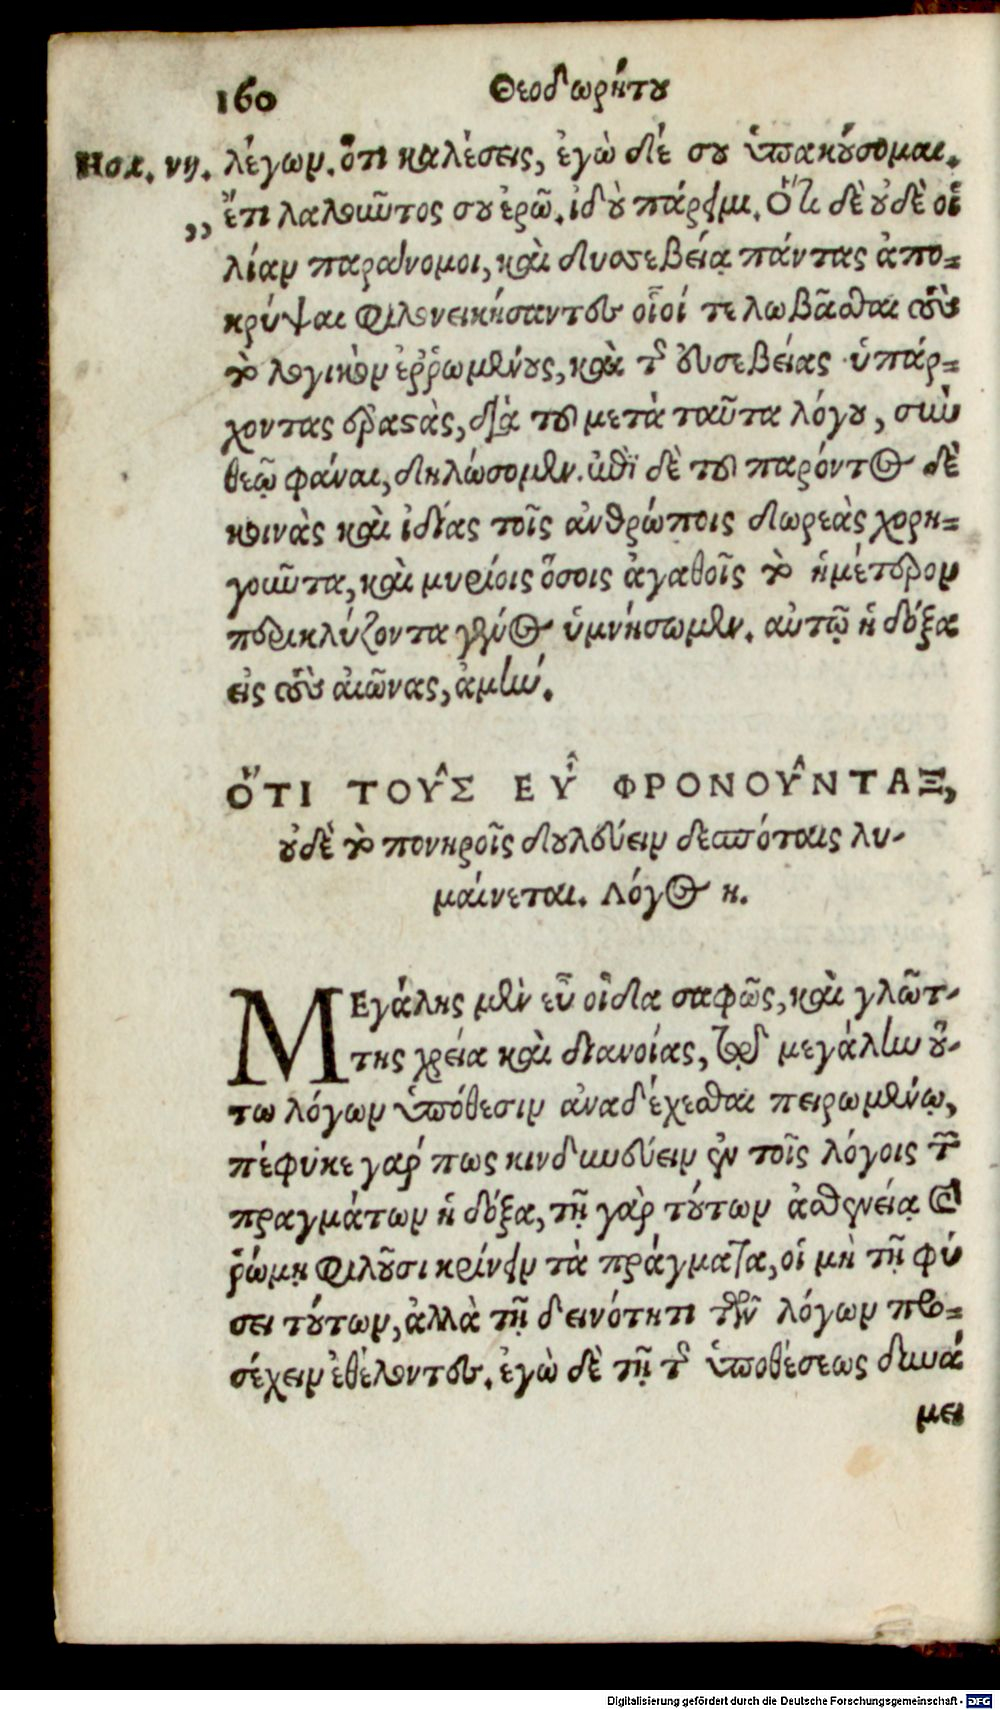 160 Θεοδωρήτου
Ησα. νη. λέγων. ὅτι καλέσεις, ἐγὼ δέ σου ὑπακούσομαι.
,, ἔτι λαλοῦντος σου ἐρῶ. ἰδοὺ πάρειμι. Ὅτι δὲ οὐδὲ οἱ
λίαν παράνομοι, καὶ δυσσεβείᾳ πάντας ἀπο-
κρύψαι φιλονεικήσαντες οἷοί τε λωβᾶσθαι τοὺς
τὸ λογικὸν ἐῤῥωμένους, καὶ τῆς εὐσεβείας ὑπάρ-
χοντας ἐραστὰς, διὰ τοῦ μετὰ ταῦτα λόγου, σὺν
θεῷ φάναι, δηλώσομεν. ἐπὶ δὲ τοῦ παρόντος δὲ
κοινὰς καὶ ἰδίας τοῖς ἀνθρώποις δωρεὰς χορη-
γοῦντα, καὶ μυρίοις ὅσοις ἀγαθοῖς τὸ ἡμέτερον
περικλύζοντα γένος ὑμνήσωμεν. αὐτῷ ἡ δόξα
εἰς τοὺς αἰῶνας, ἀμήν.
ὍΤΙ ΤΟΥ͂Σ ΕΥ̓͂ ΦΡΟΝΟΥ͂ΝΤΑΞ,
οὐδὲ τὸ πονηροῖς δουλεύειν δεσπόταις λυ-
μαίνεται. Λόγος η.
ΜΕγάλης μὲν εὖ οἶδα σαφῶς, καὶ γλῶτ-
της χρεία καὶ διανοίας, τῷ μεγάλην οὕ-
τω λόγων ὑπόθεσιν ἀναδέχεσθαι πειρωμένῳ,
πέφυκε γάρ πως κινδυνεύειν ἐν τοῖς λόγοις τῶν
πραγμάτων ἡ δόξα, τῇ γὰρ τούτων ἀσθενείᾳ καὶ
ῥώμῃ φιλοῦσι κρίνειν τὰ πράγματα, οἱ μὴ τῇ φύ
σει τούτων, ἀλλὰ τῇ δεινότητι τῶν λόγων προ-
σέχειν ἐθέλοντες. ἐγὼ δὲ τῇ τῆς ὑποθέσεως δυνά
μει
Digitalisierung gefördert durch die Deutsche Forschungsgemeinschaft - DFG